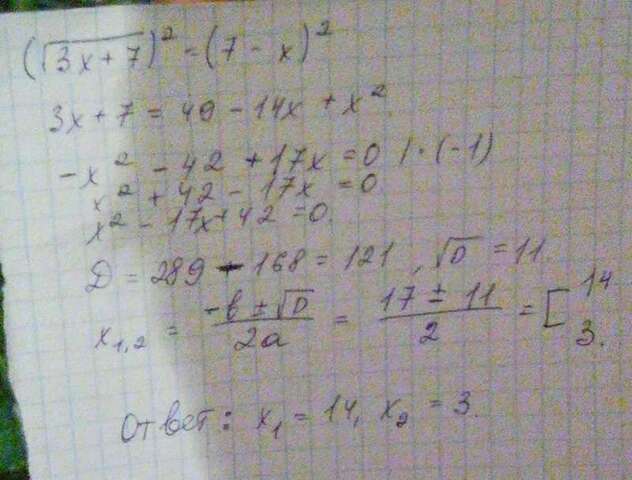 (√3x+7)² = (7 - x)²
3x + 7 = 49 - 14x + x²
-x² - 42 + 17x = 0 | · (-1)
x² + 42 - 17x = 0
x² - 17x + 42 = 0.
D = 289 - 168 = 121, √D = 11
x₁,₂ = (-b ± √D)/(2a) = (17 ± 11)/2 = [ 14 3.
Ответ: x₁ = 14, x₂ = 3.